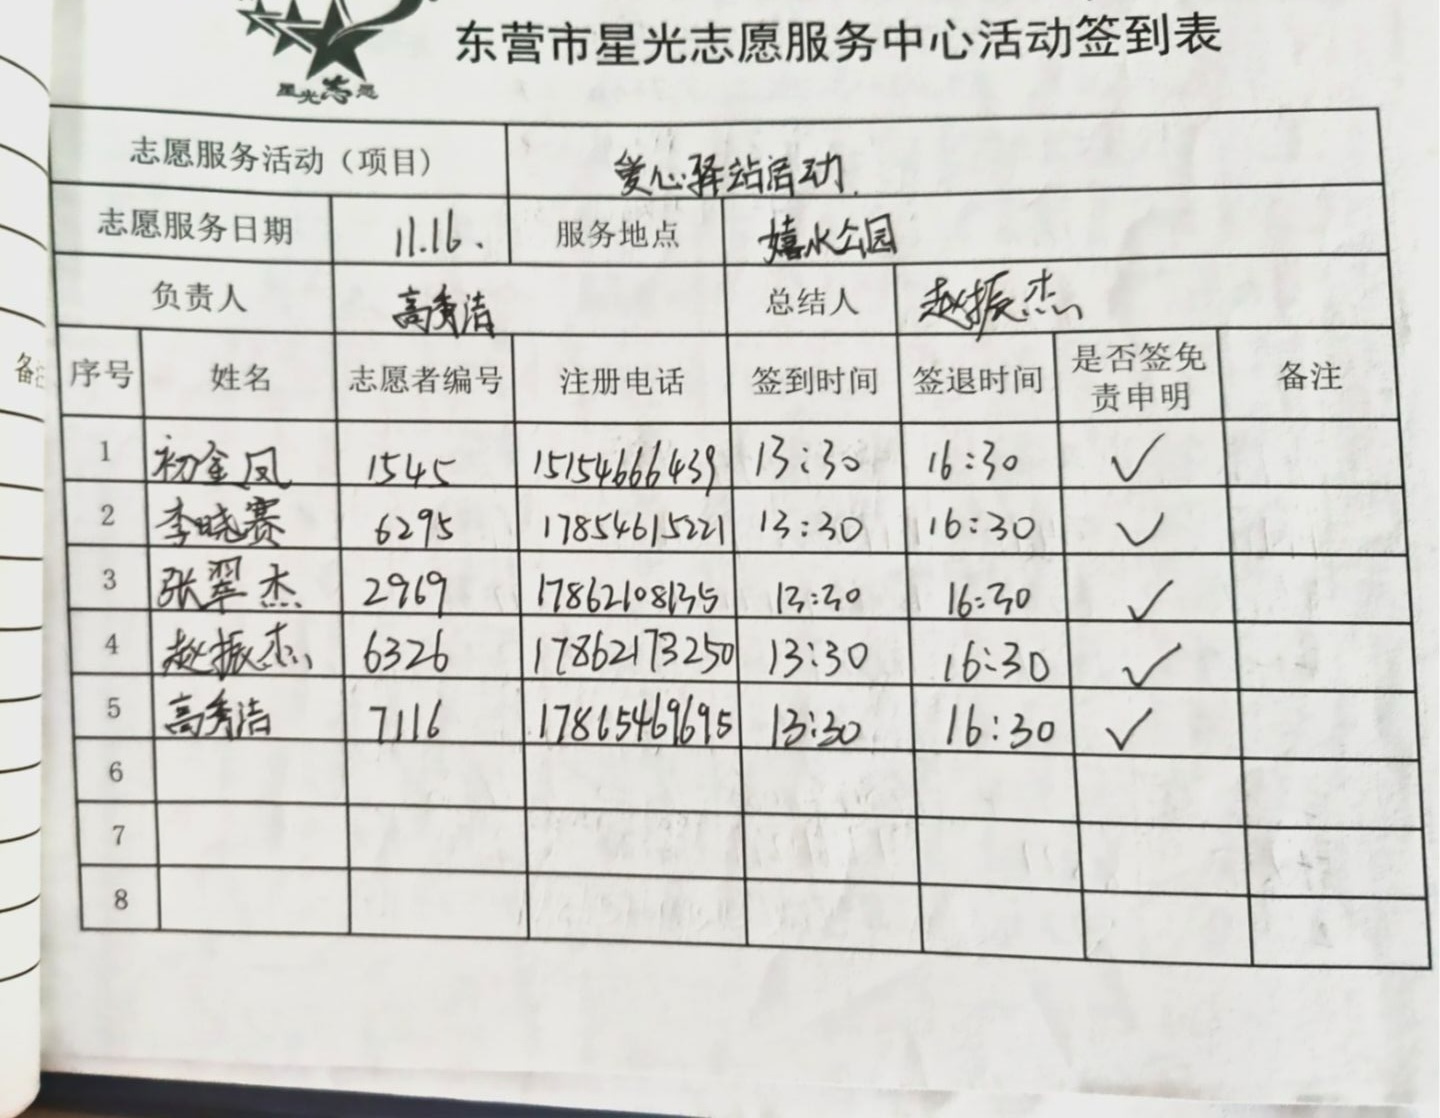 星光志愿
东营市星光志愿服务中心活动签到表
志愿服务活动（项目） 爱心驿站活动
志愿服务日期 11.16. 服务地点 嬉水公园
负责人 高秀洁 总结人 赵振杰
备注
序号 姓名 志愿者编号 注册电话 签到时间 签退时间 是否签免责申明 备注
1 初金凤 1545 15154666439 13:30 16:30 ✓
2 李晓赛 6295 17854615221 13:30 16:30 ✓
3 张翠杰 2969 17862108135 13:30 16:30 ✓
4 赵振杰 6326 17862173250 13:30 16:30 ✓
5 高秀洁 7116 17865469695 13:30 16:30 ✓
6
7
8